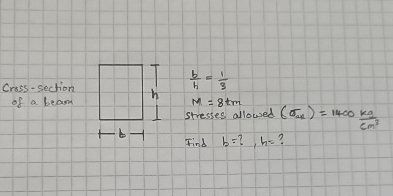 Cross-section
of a beam
h
b
b/h = 1/3
M = 8tm
stresses allowed (σall) = 1400 kg/cm²
Find b=? , h=?